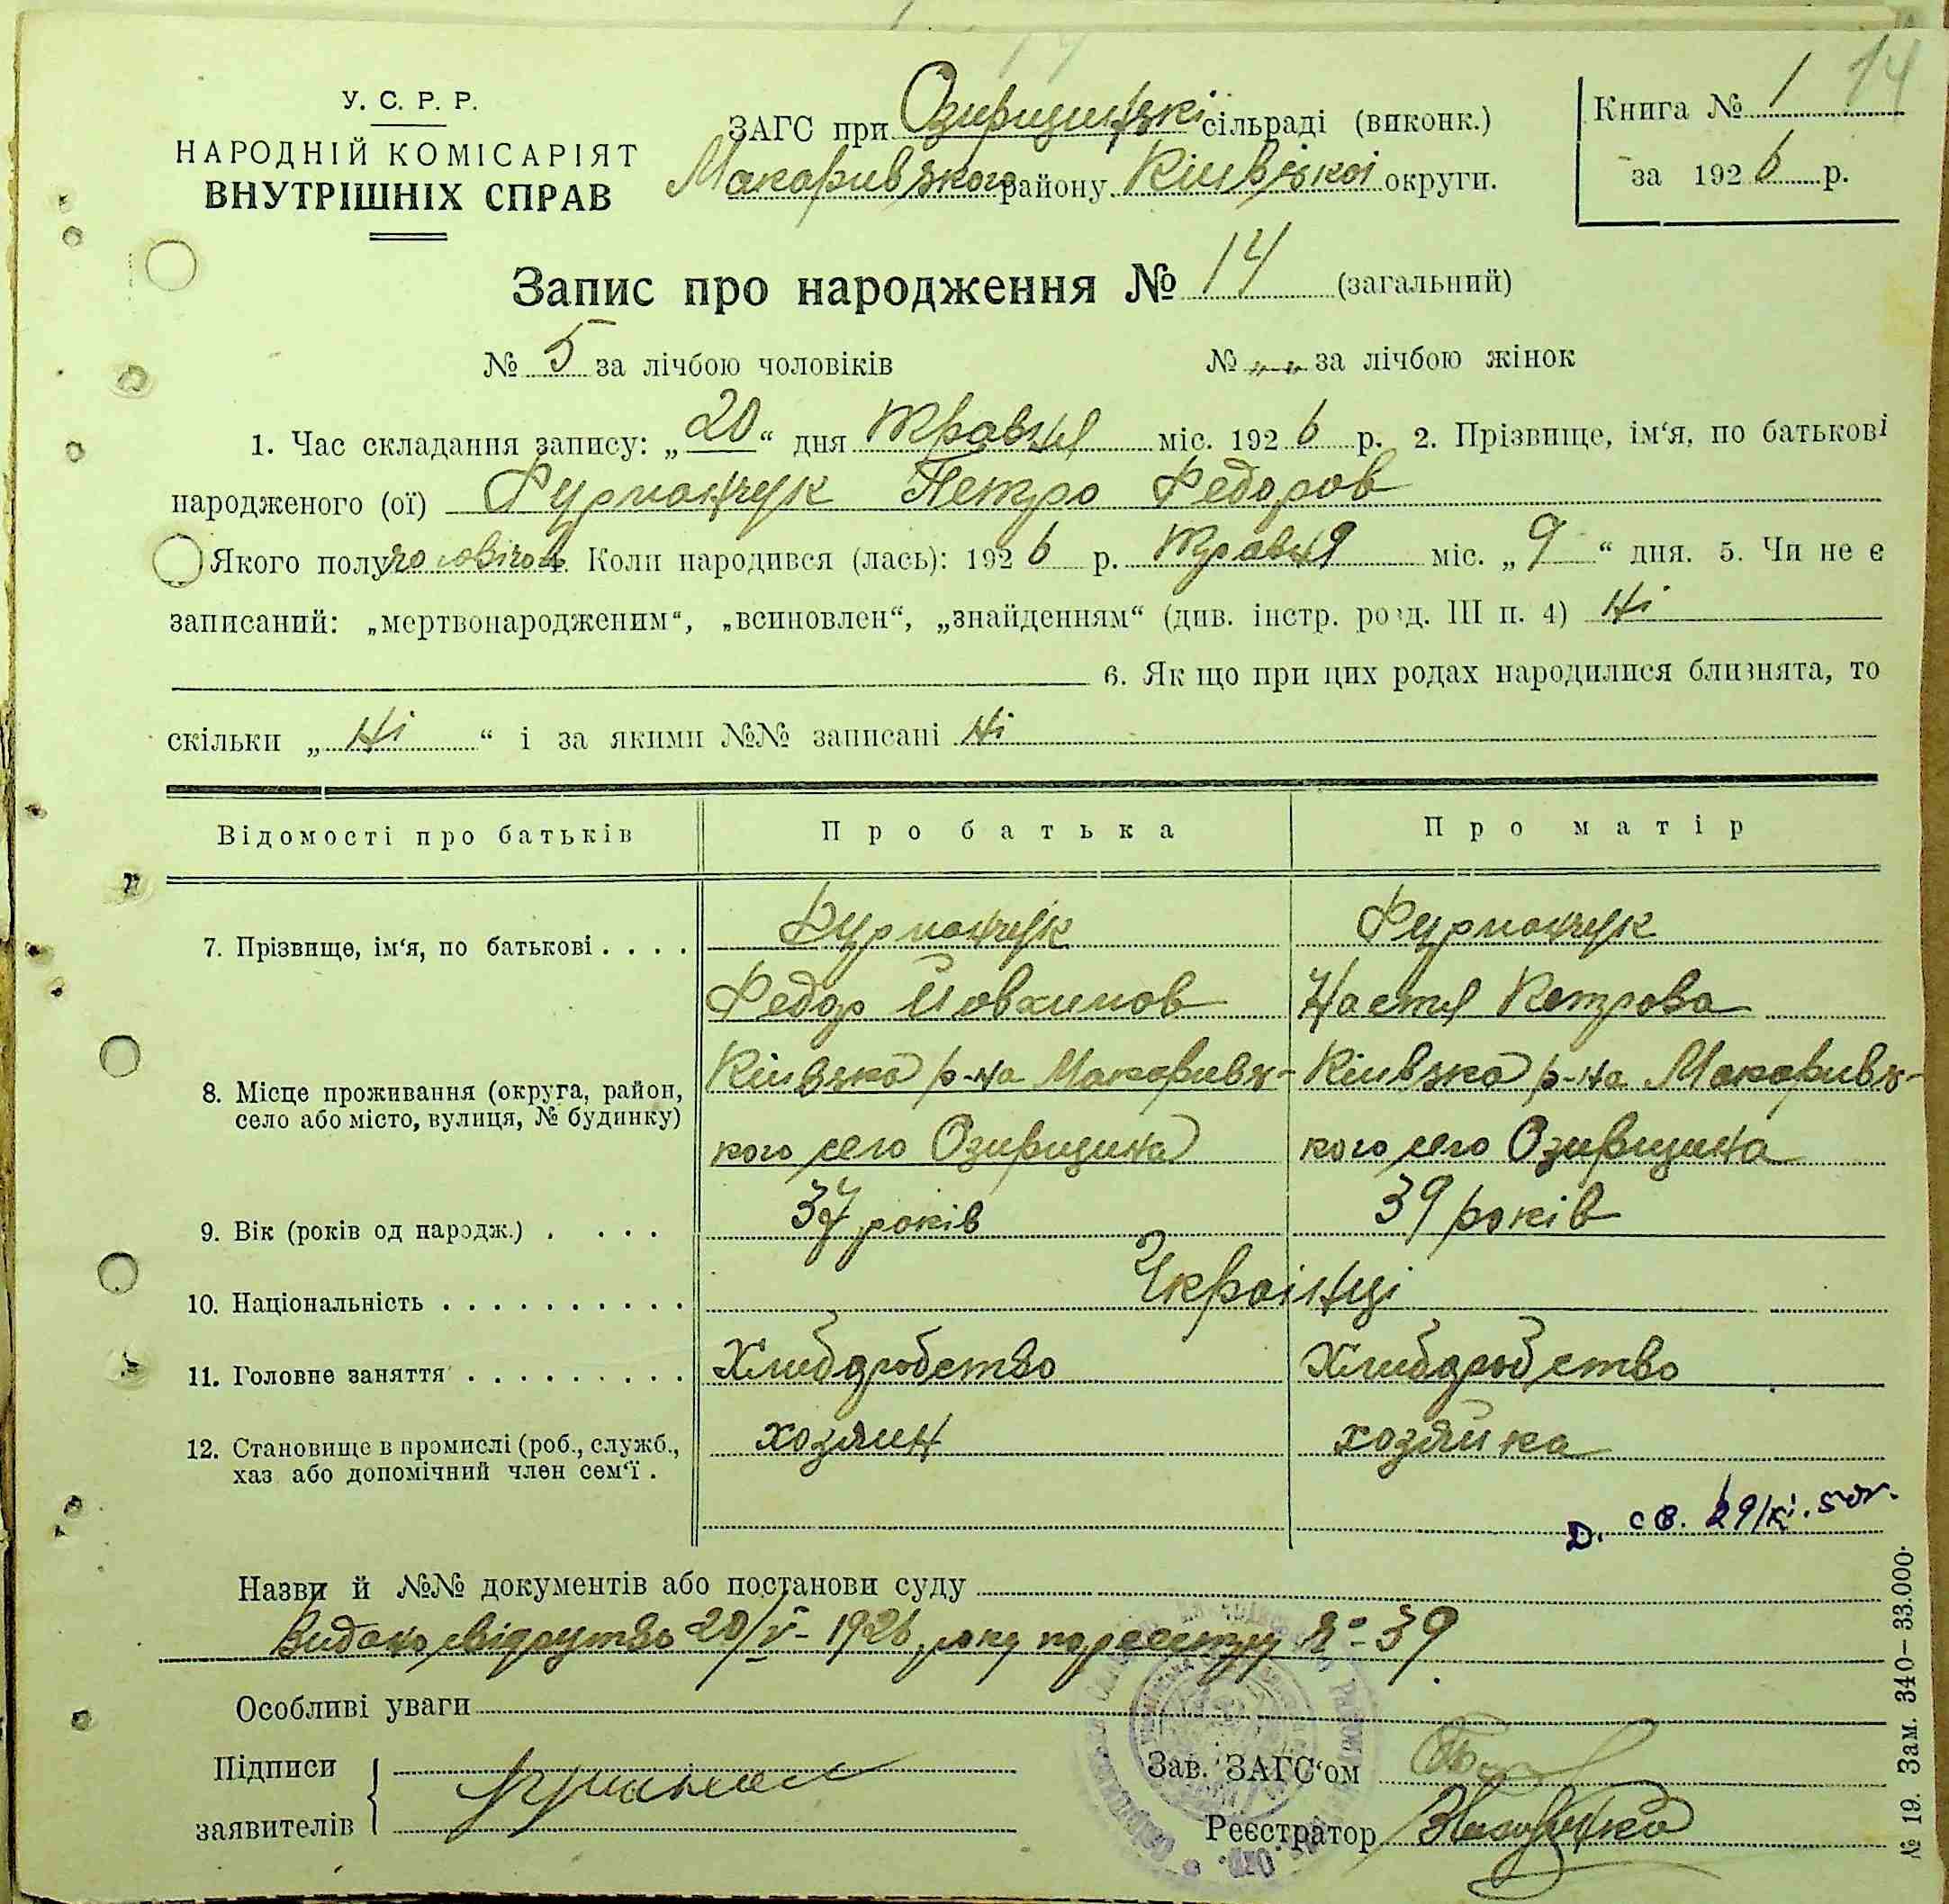 14
У. С. Р. Р.
НАРОДНІЙ КОМІСАРІЯТ
ВНУТРІШНІХ СПРАВ
ЗАГС при Озирщинські сільраді (виконк.)
Макаривського району Київської округи.
Книга № 1
за 1926 р.
Запис про народження № 14 (загальний)
№ 5 за лічбою чоловіків № „—„ за лічбою жінок
1. Час складання запису: „20“ дня Травня міс. 1926 р. 2. Прізвище, ім‘я, по батькові
народженого (ої) Фурманчук Петро Федоров
Якого полу чоловічого Коли народився (лась): 1926 р. Травня міс. „9“ дня. 5. Чи не є
записаний: „мертвонародженим“, „всиновлен“, „знайденням“ (див. інстр. розд. III п. 4) Ні
6. Як що при цих родах народилися близнята, то
скільки „Ні“ і за якими №№ записані Ні
Відомості про батьків Про батька Про матір
7. Прізвище, ім‘я, по батькові . . . . Фурманчук Фурманчук
Федор Йовхимов Настя Петрова
8. Місце проживання (округа, район, Київска р-на Макаривс- Київска р-на Макаривс-
село або місто, вулиця, № будинку) кого село Озирщина кого село Озирщина
9. Вік (років од народж.) . . . . 37 років 39 років
10. Національність . . . . . . . . . . Українці
11. Головне заняття . . . . . . . . . Хлиборобство Хлиборобство
12. Становище в промислі (роб., служб., хозяин хозяйка
хаз або допомічний член сем‘ї .
Д. св. 29/XI. 50г.
Назви й №№ документів або постанови суду
Видано свідоцтво 20/V- 1926 року по реєстру №-39
Особливі уваги
Підписи
заявителів
Зав. ЗАГС‘ом
Реєстратор
№ 19. Зам. 340—33.000.